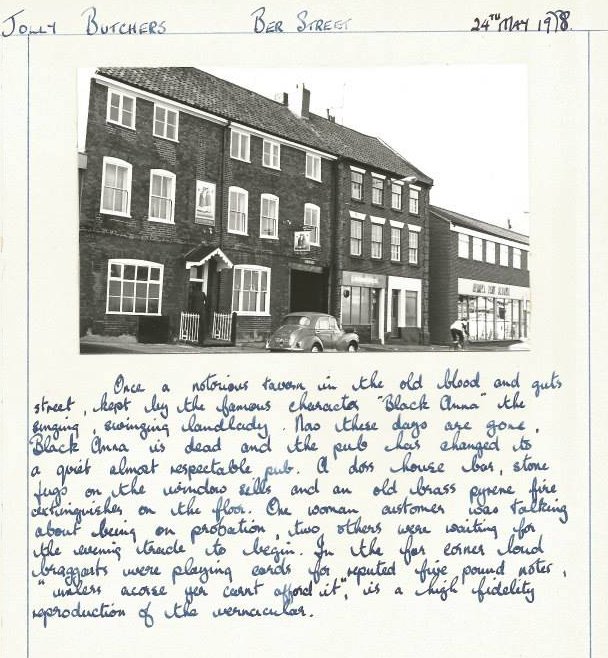 JOLLY BUTCHERS BER STREET 24TH MAY 1978.
Once a notorious tavern in the old blood and guts
street, kept by the famous character "Black Anna" the
singing, swinging landlady. Now these days are gone,
Black Anna is dead and the pub has changed to
a quiet almost respectable pub. A doss house bar, stone
jugs on the window sells and an old brass pyrene fire
extinguisher on the floor. One woman customer was talking
about being on probation, two others were waiting for
the evening trade to begin. In the far corner loud
braggarts were playing cards for reputed five pound notes,
"unless acorse yer carnt afford it", is a high fidelity
reproduction of the vernacular.